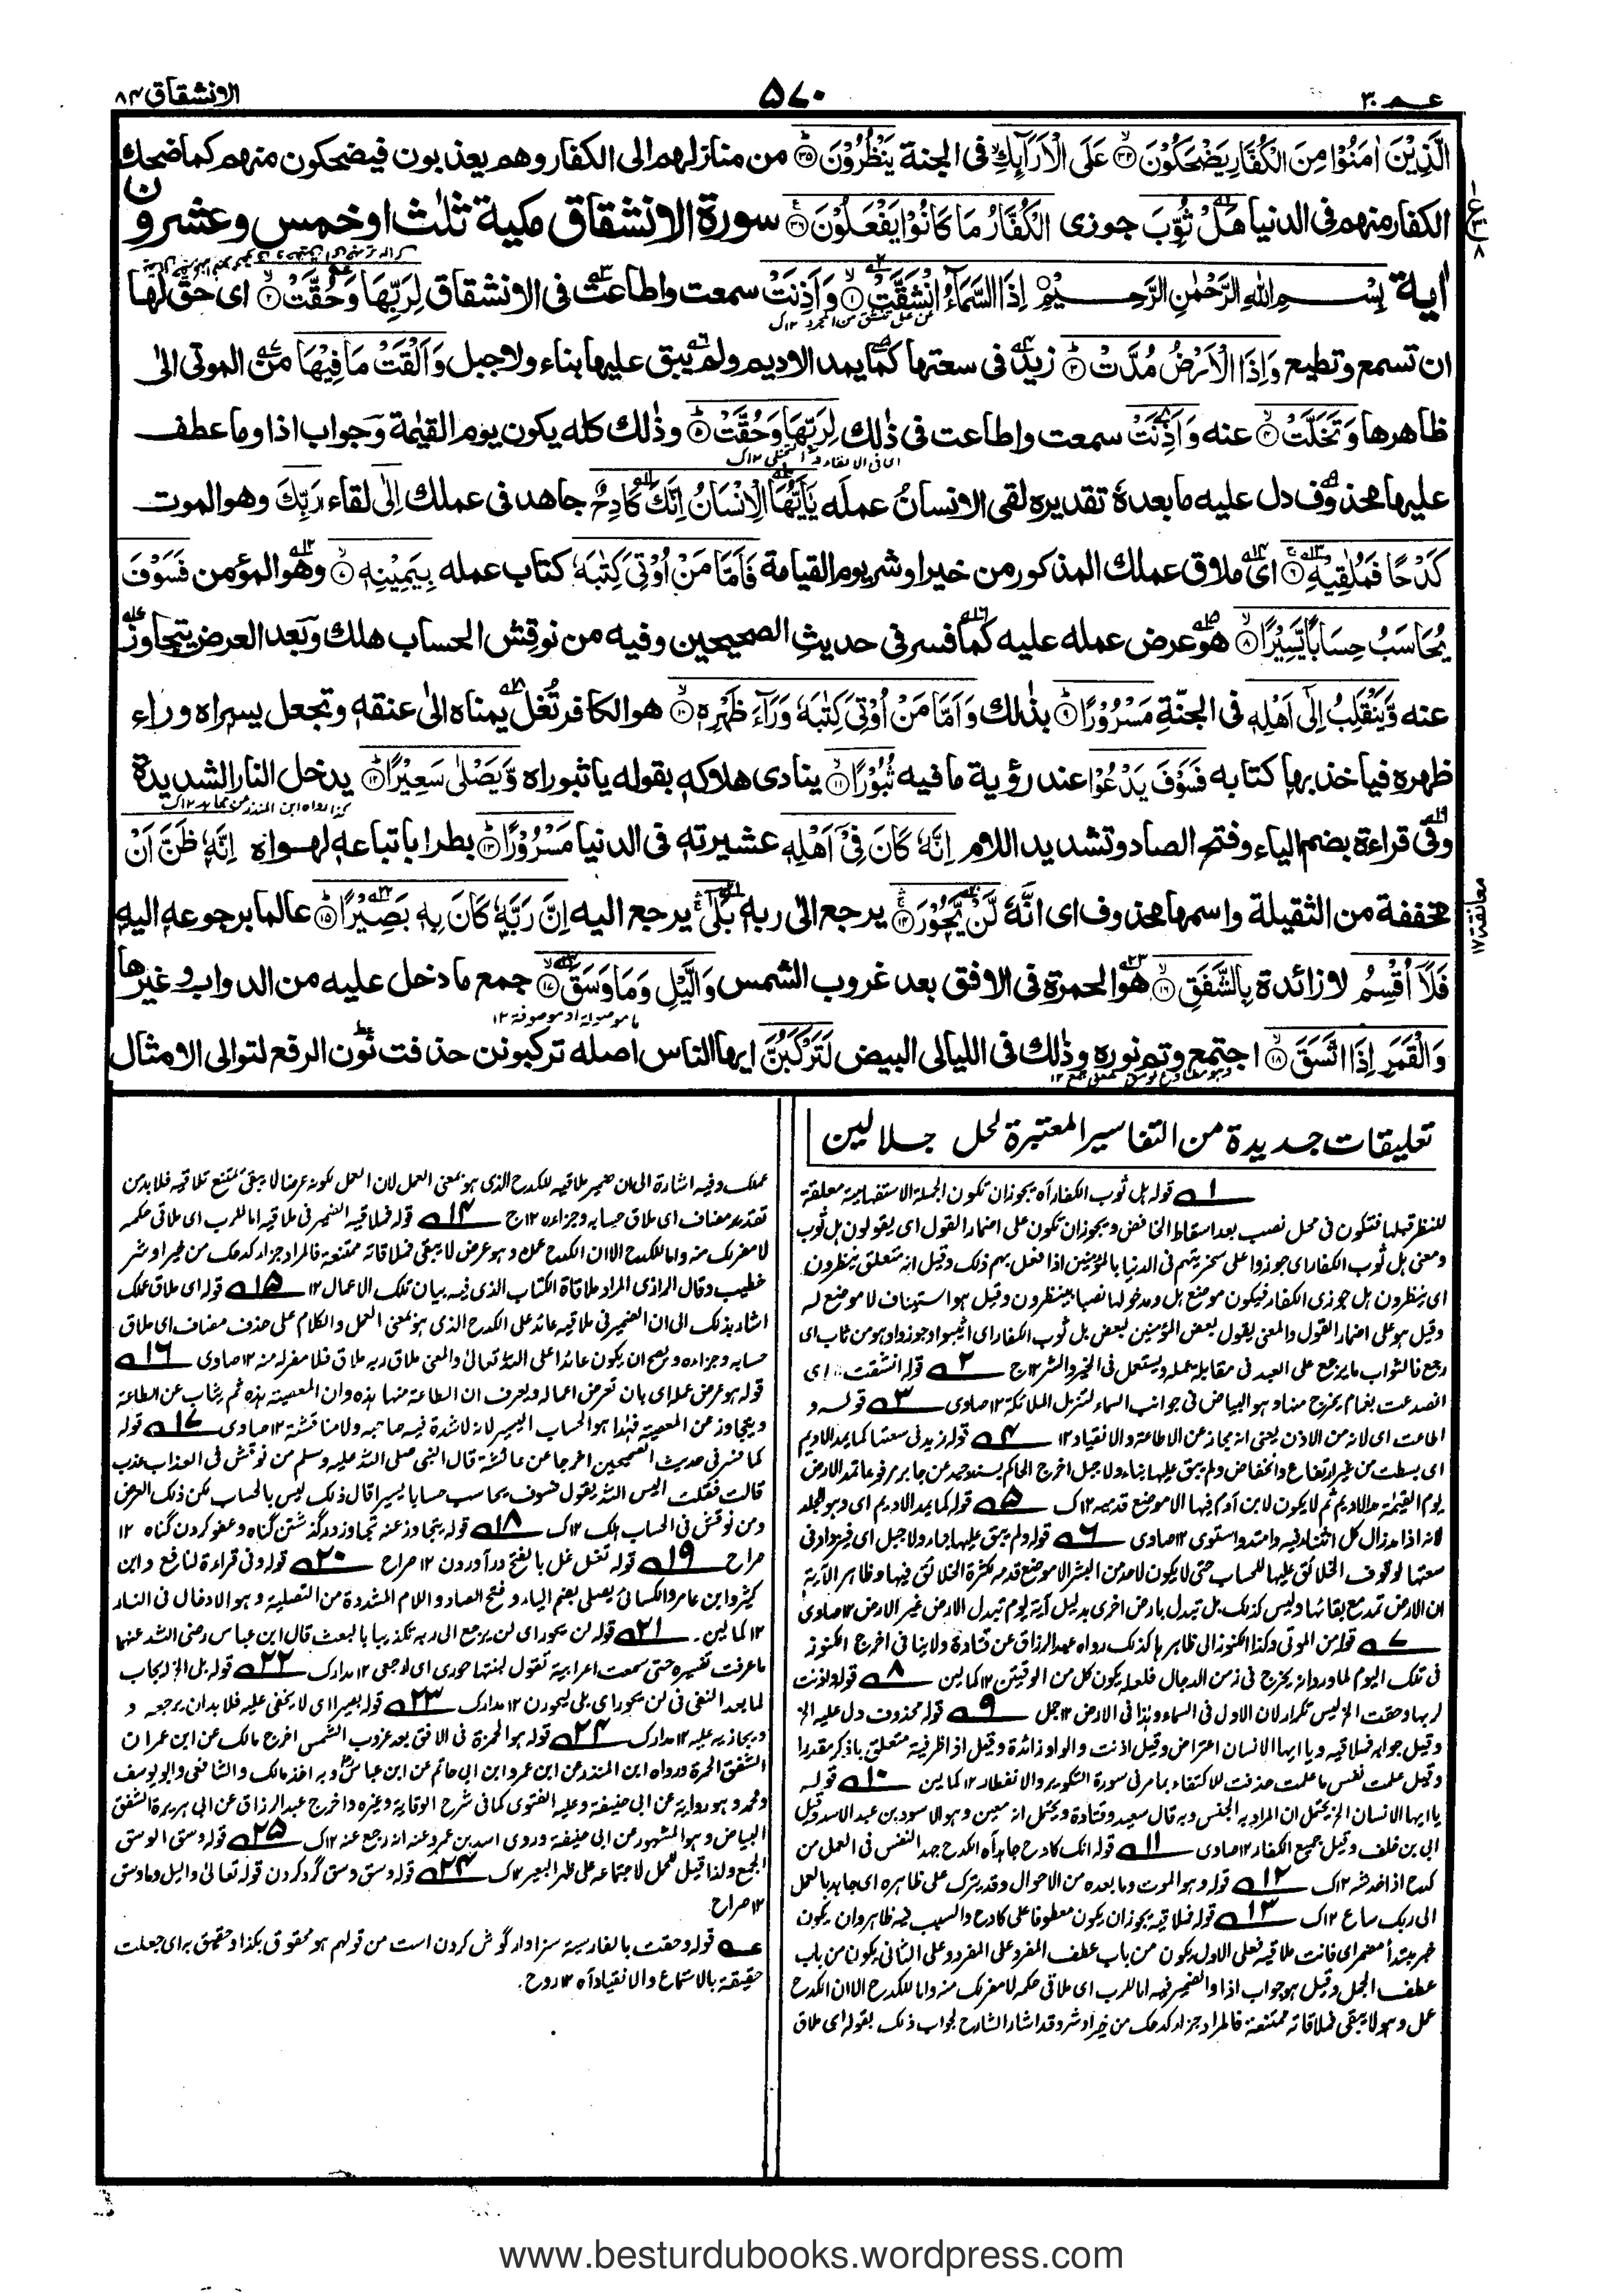 عـم ٣٠
٥٧٠
الانشقاق ٨٤
الَّذِيْنَ اٰمَنُوْا مِنَ الْكُفَّارِ يَضْحَكُوْنَ ۙ﴿٣٤﴾ عَلَى الْاَرَآئِكِ ۙ فى الجنة يَنْظُرُوْنَ ؕ﴿٣٥﴾ من منازلهم الى الكفار وهم يعذبون فيضحكون منهم كما ضحك
الكفار منهم فى الدنيا هَلْ ثُوِّبَ جوزى الْكُفَّارُ مَا كَانُوْا يَفْعَلُوْنَ ﴿٣٦﴾ سورة الانشقاق مكية ثلٰث او خمس وعشرون
اٰية بِسْــمِ اللّٰهِ الرَّحْمٰنِ الرَّحِــيْمِ اِذَا السَّمَآءُ انْشَقَّتْ ۙ﴿١﴾ وَاَذِنَتْ سمعت واطاعت فى الانشقاق لِرَبِّهَا وَحُقَّتْ ۙ﴿٢﴾ اى حق لها
ان تسمع وتطيع وَاِذَا الْاَرْضُ مُدَّتْ ۙ﴿٣﴾ زيد فى سعتها كما يمد الاديم ولم يبق عليها بناء ولا جبل وَاَلْقَتْ مَا فِيْهَا من الموتى الىٰ
ظاهرها وَتَخَلَّتْ ۙ﴿٤﴾ عنه وَاَذِنَتْ سمعت واطاعت فى ذٰلك لِرَبِّهَا وَحُقَّتْ ؕ﴿٥﴾ وذٰلك كله يكون يوم القيٰمة وجواب اذا وما عطف
عليها محذوف دل عليه ما بعدهٗ تقديره لقى الانسانُ عمله يٰۤاَيُّهَا الْاِنْسَانُ اِنَّكَ كَادِحٌ جاهد فى عملك اِلٰى لقاء رَبِّكَ وهو الموت
كَدْحًا فَمُلٰقِيْهِ ۚ﴿٦﴾ اى ملاق عملك المذكور من خير او شر يوم القيامة فَاَمَّا مَنْ اُوْتِىَ كِتٰبَهٗ كتاب عمله بِيَمِيْنِهٖ ۙ﴿٧﴾ وهو المؤمن فَسَوْفَ
يُحَاسَبُ حِسَابًا يَّسِيْرًا ۙ﴿٨﴾ هو عرض عمله عليه كما فسر فى حديث الصحيحين وفيه من نوقش الحساب هلك وبعد العرض يتجاوز
عنه وَّيَنْقَلِبُ اِلٰٓى اَهْلِهٖ فى الجنّة مَسْرُوْرًا ؕ﴿٩﴾ بذٰلك وَاَمَّا مَنْ اُوْتِىَ كِتٰبَهٗ وَرَآءَ ظَهْرِهٖ ۙ﴿١٠﴾ هو الكافر تُغل يمناه الىٰ عنقهٖ وتجعل يسراه وراء
ظهرهٖ فياخذ بها كتابه فَسَوْفَ يَدْعُوْا عند رؤية ما فيه ثُبُوْرًا ۙ﴿١١﴾ ينادى هلاكهٖ بقوله يا ثبوراه وَّيَصْلٰى سَعِيْرًا ؕ﴿١٢﴾ يدخل النار الشديدة
وفى قراءة بضم الياء وفتح الصاد وتشديد اللام اِنَّهٗ كَانَ فِىْٓ اَهْلِهٖ عشيرتهٖ فى الدنيا مَسْرُوْرًا ؕ﴿١٣﴾ بطرا باتباعهٖ لهواه اِنَّهٗ ظَنَّ اَنْ
مخففة من الثقيلة واسمها محذوف اى انّهٗ لَّنْ يَّحُوْرَ ۚ﴿١٤﴾ يرجع الىٰ ربهٖ بَلٰٓى ۚ يرجع اليه اِنَّ رَبَّهٗ كَانَ بِهٖ بَصِيْرًا ؕ﴿١٥﴾ عالما برجوعهٖ اليه
فَلَآ اُقْسِمُ لا زائدة بِالشَّفَقِ ۙ﴿١٦﴾ هو الحمرة فى الافق بعد غروب الشمس وَالَّيْلِ وَمَا وَسَقَ ۙ﴿١٧﴾ جمع ما دخل عليه من الدواب وغيرها
وَالْقَمَرِ اِذَا اتَّسَقَ ۙ﴿١٨﴾ اجتمع وتم نوره وذٰلك فى الليالى البيض لَتَرْكَبُنَّ ايها الناس اصله تركبونن حذفت نون الرفع لتوالى الامثال
معانقة ١٧
تعليقات جديدة من التفاسير المعتبرة لحل جلالين
١ قوله هل ثوب الكفار اٰه يجوز ان تكون الجملة الاستفهامية معلقة
للنظر قبلها فتكون فى محل نصب بعد اسقاط الخافض ويجوز ان تكون على اضمار القول اى يقولون هل ثوب
ومعنى هل ثوب الكفار اى جوزوا على سخريتهم فى الدنيا بالمؤمنين اذا فعل بهم ذلك وقيل انه متعلق بينظرون
اى ينظرون هل جوزى الكفار فيكون موضع هل ومدخولها نصبا بينظرون وقيل هو استيناف لا موضع له
وقيل هو على اضمار القول والمعنى يقول بعض المؤمنين لبعض هل ثوب الكفار اى اثيبوا وجوزوا وهو من ثاب اى
رجع فالثواب ما يرجع على العبد فى مقابلة عمله ويستعمل فى الخير والشر ١٢ ج ٢ قوله انشقت اى
انصدعت بغمام يخرج منها وهو البياض فى جوانب السماء لتنزل الملائكة ١٢ صاوى ٣ قوله و
اطاعت اى لانه من الاذن يعنى انه مجاز عن الاطاعة والانقياد ١٢ ٤ قوله زيد فى سعتها كما يمد الاديم
اى بسطت من غير ارتفاع وانخفاض ولم يبق عليها بناء ولا جبل اخرج الحاكم بسند جيد عن جابر مرفوعا تمد الارض
يوم القيٰمة مد الاديم ثم لا يكون لابن آدم فيها الا موضع قدميه ١٢ ك ٥ قوله كما يمد الاديم اى وهو الجلد
لانه اذا مد زال كل انثناء فيه وامتد واستوى ١٢ صاوى ٦ قوله ولم يبق عليها بناء ولا جبل اى فيزداد فى
سعتها لوقوف الخلائق عليها للحساب حتى لا يكون لاحد من البشر الا موضع قدمه لكثرة الخلائق فيها وظاهر الآية
ان الارض تمد مع بقائها وليس كذلك بل تبدل بارض اخرى بدليل آية يوم تبدل الارض غير الارض ١٢ صاوى
٧ قوله من الموتى وكذا الكنوز الى ظاهرها كذلك رواه عبد الرزاق عن قتادة ولا ينافى اخرج الكنوز
فى تلك اليوم لما ورد انه يخرج فى زمن الدجال فلعله يكون كل من الوقتين ١٢ كمالين ٨ قوله واذنت
لربها وحقت الخ ليس تكرار لان الاول فى السماء وهذا فى الارض ١٢ جمل ٩ قوله محذوف دل عليه الخ
وقيل جوابه فملاقيه ويا ايها الانسان اعتراض وقيل اذنت والواو زائدة وقيل اذا ظرفية متعلق باذكر مقدرا
وقيل علمت نفس ما عملت حذفت للاكتفاء بما مر فى سورة التكوير والانفطار ١٢ كمالين ١٠ قوله
يا ايها الانسان الخ يحتمل ان المراد به الجنس وبه قال سعيد وقتادة ويحتمل انه معين وهو الاسود بن عبد الاسد وقيل
ابى بن خلف وقيل جميع الكفار ١٢ صاوى ١١ قوله انك كادح جاهد اٰه الكدح جهد النفس فى العمل من
كدح اذا خدشه ١٢ ك ١٢ قوله وهو الموت وما بعده من الاحوال وقد يترك على ظاهره اى جاهد بالعمل
الى ربك ساع ١٢ ك ١٣ قوله فملاقيه يجوز ان يكون معطوفا على كادح والسبب فيه ظاهر وان يكون
خبر مبتدأ مضمر اى فانت ملاقيه فعلى الاول يكون من باب عطف المفرد على المفرد وعلى الثانى يكون من باب
عطف الجمل وقيل هو جواب اذا والضمير فيه اما للرب اى ملاقى حكمه لا مفر لك منه واما للكدح الا ان الكدح
عمل وهو لا يبقى فملاقاته ممتنعة فالمراد جزاء كدحك من خير او شر وقد اشار الشارح لجواب ذلك بقوله اى ملاق
عملك وفيه اشارة الى ان ضمير ملاقيه للكدح الذى هو بمعنى العمل لان العمل لكونه عرضا لا يبقى يمتنع تلاقيه فلا بد من
تقدير مضاف اى ملاق حسابه وجزاءه ١٢ ج ١٤ قوله فملاقيه الضمير فى ملاقيه اما للرب اى ملاقى حكمه
لا مفر لك منه واما للكدح الا ان الكدح عمل وهو عرض لا يبقى فملاقاته ممتنعة فالمراد جزاء كدحك من خير او شر
خطيب وقال الرازى المراد ملاقاة الكتاب الذى فيه بيان تلك الاعمال ١٢ ١٥ قوله اى ملاق عملك
اشار بذلك الى ان الضمير فى ملاقيه عائد على الكدح الذى هو بمعنى العمل والكلام على حذف مضاف اى ملاق
حسابه وجزاءه ويصح ان يكون عائدا على اللّٰه تعالىٰ والمعنى ملاق ربه ملاق فلا مفر له منه ١٢ صاوى ١٦
قوله هو عرض عمله اى بان تعرض اعماله ويعرف ان الطاعة منها هذه وان المعصية هذه ثم يثاب عن الطاعة
ويتجاوز عن المعصية فهذا هو الحساب اليسير لانه لا شدة فيه صاحبه ولا مناقشة ١٢ صاوى ١٧ قوله
كما فسر فى حديث الصحيحين اخرجا عن عائشة قال النبى صلى اللّٰه عليه وسلم من نوقش فى العذاب عذب
قالت فقلت اليس اللّٰه يقول فسوف يحاسب حسابا يسيرا قال ذلك ليس بالحساب لكن ذلك العرض
ومن نوقش فى الحساب هلك ١٢ ك ١٨ قوله يتجاوز عنه تجاوز در گذشتن گناه و عفو كردن گناه ١٢
صراح ١٩ قوله تغل غل بالفتح در آوردن ١٢ صراح ٢٠ قوله وفى قراءة لنافع وابن
كثير وابن عامر والكسائى يصلى بضم الياء وفتح الصاد واللام المشددة من التصلية وهو الادخال فى النار
١٢ كمالين ٢١ قوله لن يحور اى لن يرجع الى ربه تكذيبا بالبعث قال ابن عباس رضى اللّٰه عنهما
ما عرفت تفسيره حتى سمعت اعرابية تقول لبنتها حورى اى ارجعى ١٢ مدارك ٢٢ قوله بلى الخ ايجاب
لما بعد النفى فى لن يحور اى بلى ليحورن ١٢ مدارك ٢٣ قوله بصيرا اى لا يخفى عليه فلا بد ان يرجعه و
ويجازيه عليه ١٢ مدارك ٢٤ قوله هو الحمرة فى الافق بعد غروب الشمس اخرج مالك عن ابن عمر ان
الشفق الحمرة ورواه ابن المنذر عن ابن عمر وابن ابى حاتم عن ابن عباس وبه اخذ مالك والشافعى وابو يوسف
ومحمد وهو رواية عن ابى حنيفة وعليه الفتوى كما فى شرح الوقاية وغيره واخرج عبد الرزاق عن ابى هريرة الشفق
البياض وهو المشهور عن ابى حنيفة وروى اسد بن عمرو عنه انه رجع عنه ١٢ ك ٢٥ قوله وسق الوسق
الجمع ولذا قيل للحمل لاجتماعه على ظهر البعير ١٢ ك ٢٤ قوله وسق وسق گرد كردن قوله تعالىٰ والليل وما وسق
١٢ صراح
عـه قوله وحقت بالفارسية سزاوار گوش كردن است من قولهم هو محقوق بكذا وحقيق به اى جعلت
حقيقة بالاستماع والانقياد اٰه ١٢ روح.
www.besturdubooks.wordpress.com